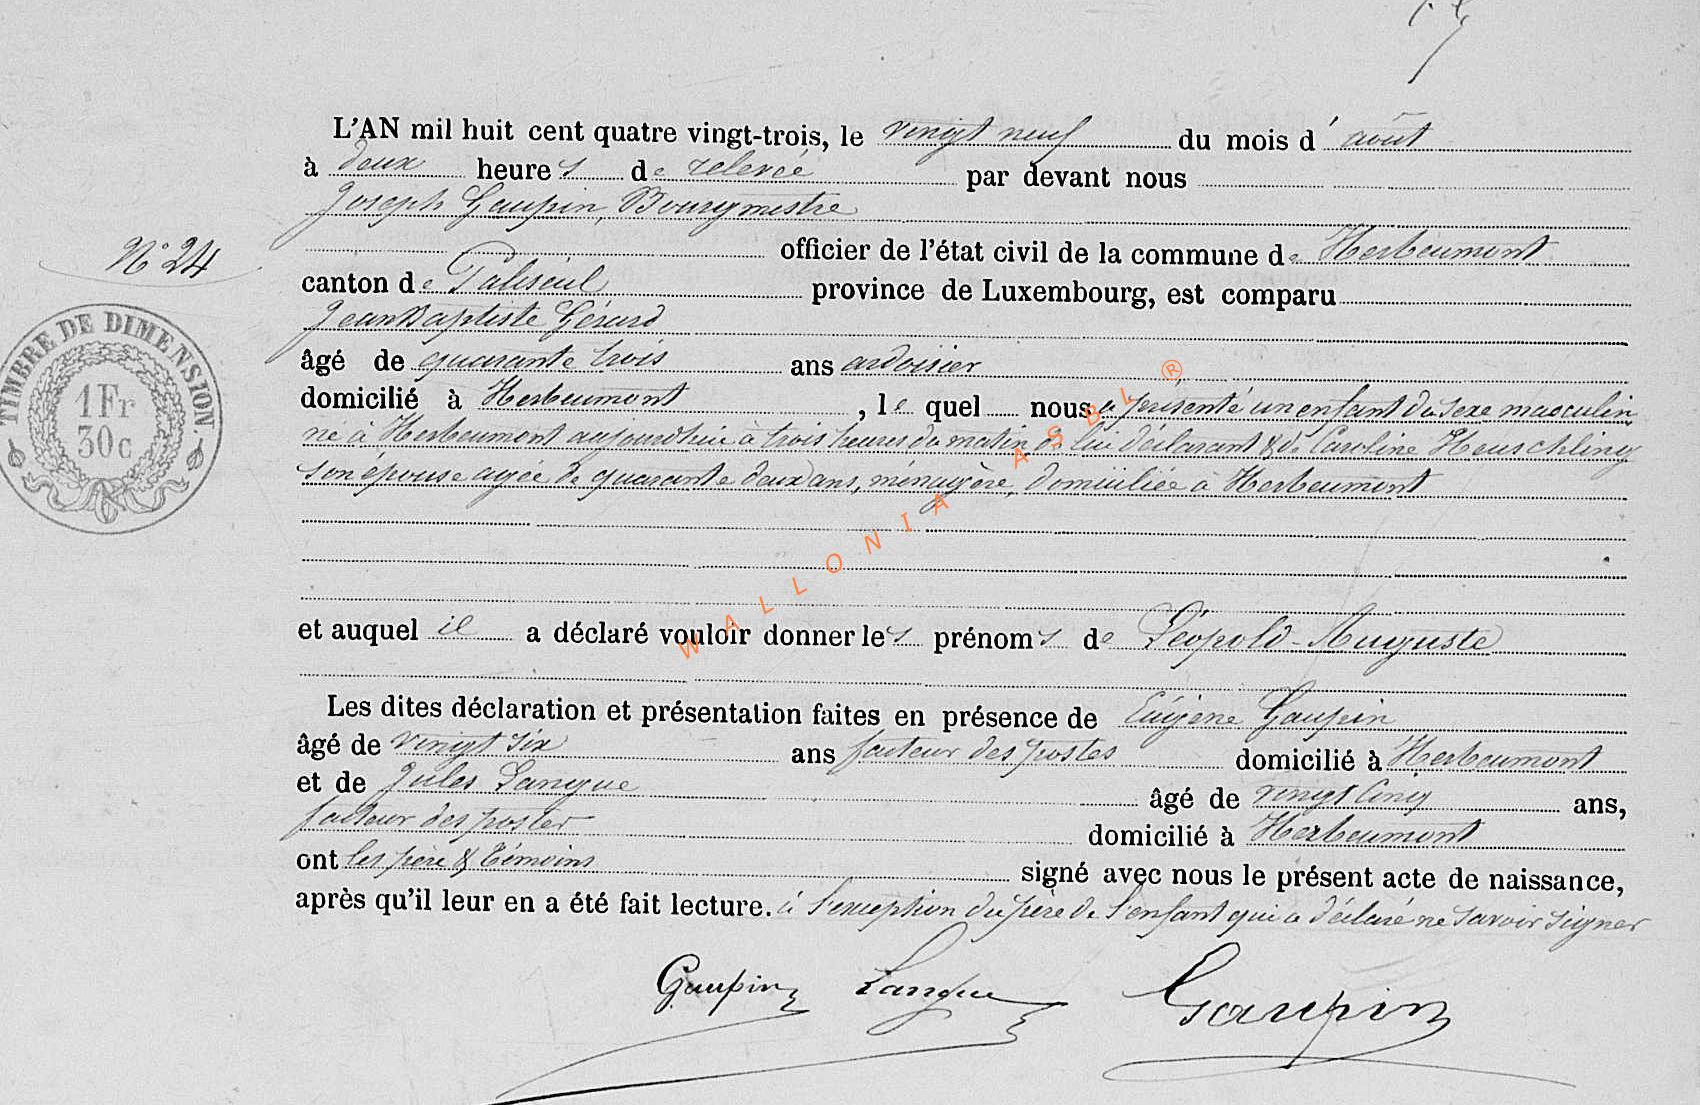 L'AN mil huit cent quatre vingt-trois, le vingt neuf du mois d'août
à deux heures de relevée par devant nous
Joseph Gaupin, Bourgmestre
officier de l'état civil de la commune de Herbeumont
N° 24
canton de Paliseul province de Luxembourg, est comparu
Jean Baptiste Gérard
âgé de quarante trois ans ardoisier
domicilié à Herbeumont, lequel nous a présenté un enfant du sexe masculin
né à Herbeumont aujourd'hui à trois heures du matin de lui déclarant & de Caroline Heuschling
son épouse agée de quarante deux ans, ménagère, domiciliée à Herbeumont
et auquel il a déclaré vouloir donner les prénoms de Léopold-Auguste
Les dites déclaration et présentation faites en présence de Eugène Gaupin
âgé de vingt six ans facteur des postes domicilié à Herbeumont
et de Jules Langue âgé de vingt cinq ans,
facteur des postes domicilié à Herbeumont
ont les père & témoins signé avec nous le présent acte de naissance,
après qu'il leur en a été fait lecture. à l'exception du père de l'enfant qui a déclaré ne savoir signer
Gaupin Langue Gaupin
TIMBRE DE DIMENSION.
1 Fr
30c
WALLONIA ASBL ®